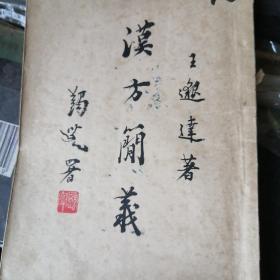 王邈達著
漢方簡義
署